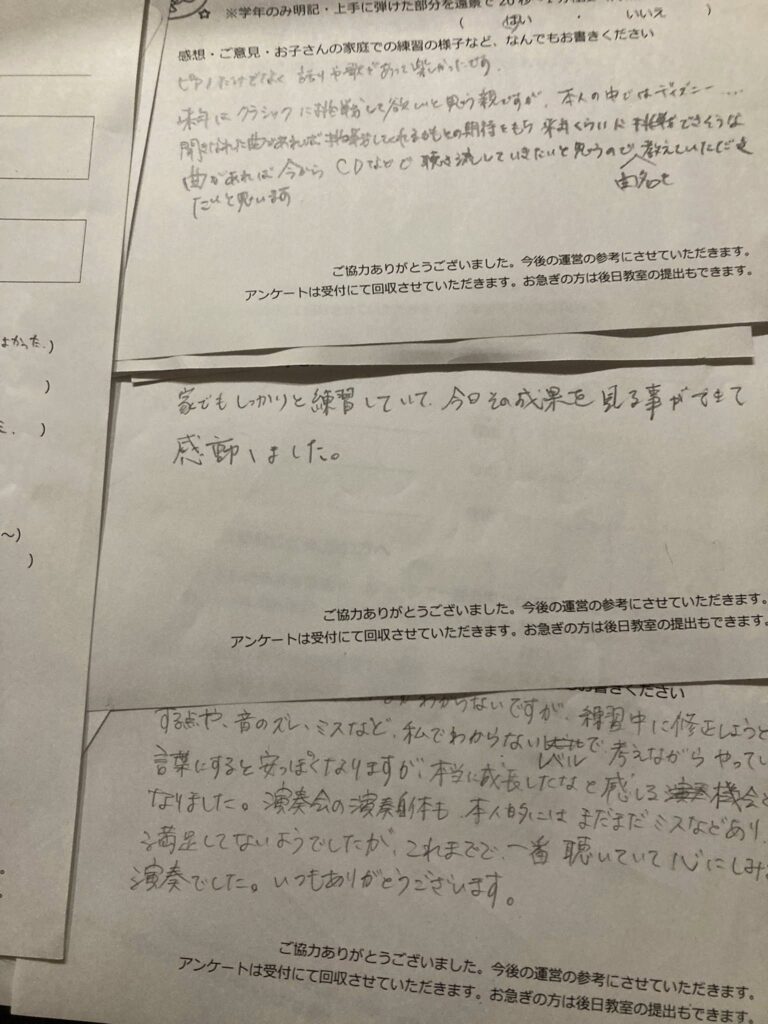 ※学年のみ明記・上手に弾けた部分を遠景で20秒～
( はい ・ いいえ )
感想・ご意見・お子さんの家庭での練習の様子など、なんでもお書きください
ピアノだけでなく 語りや歌があって楽しかったです。
来年は クラシックに挑戦して欲しいと思う親ですが、本人の中ではディズニー....
聞きなれた曲があれば 挑戦してくれるかもとの期待をもち 来年くらいに 挑戦できそうな
曲があれば 今から CDなどで 聴き流していきたいと思うので 教えていただき
曲名を
たいと思います
ご協力ありがとうございました。今後の運営の参考にさせていただきます。
アンケートは受付にて回収させていただきます。お急ぎの方は後日教室の提出もできます。
よかった.)
)
)
～)
)
家でもしっかりと練習していて、今日その成果を見る事ができて
感動しました。
ご協力ありがとうございました。今後の運営の参考にさせていただきます。
アンケートは受付にて回収させていただきます。お急ぎの方は後日教室の提出もできます。
お書きください
わからないですが、練習中に修正しようと
する点や、音のズレ、ミスなど、私でわからない レベルで 考えながら やってい
言葉にすると安っぽくなりますが、本当に成長したなと感じる 機会と
なりました。演奏会の演奏自体も、本人的には まだまだ ミスなどあり、
満足してないようでしたが、これまでで、一番 聴いていて 心にしみる
演奏でした。いつもありがとうございます。
ご協力ありがとうございました。今後の運営の参考にさせていただきます。
アンケートは受付にて回収させていただきます。お急ぎの方は後日教室の提出もできます。